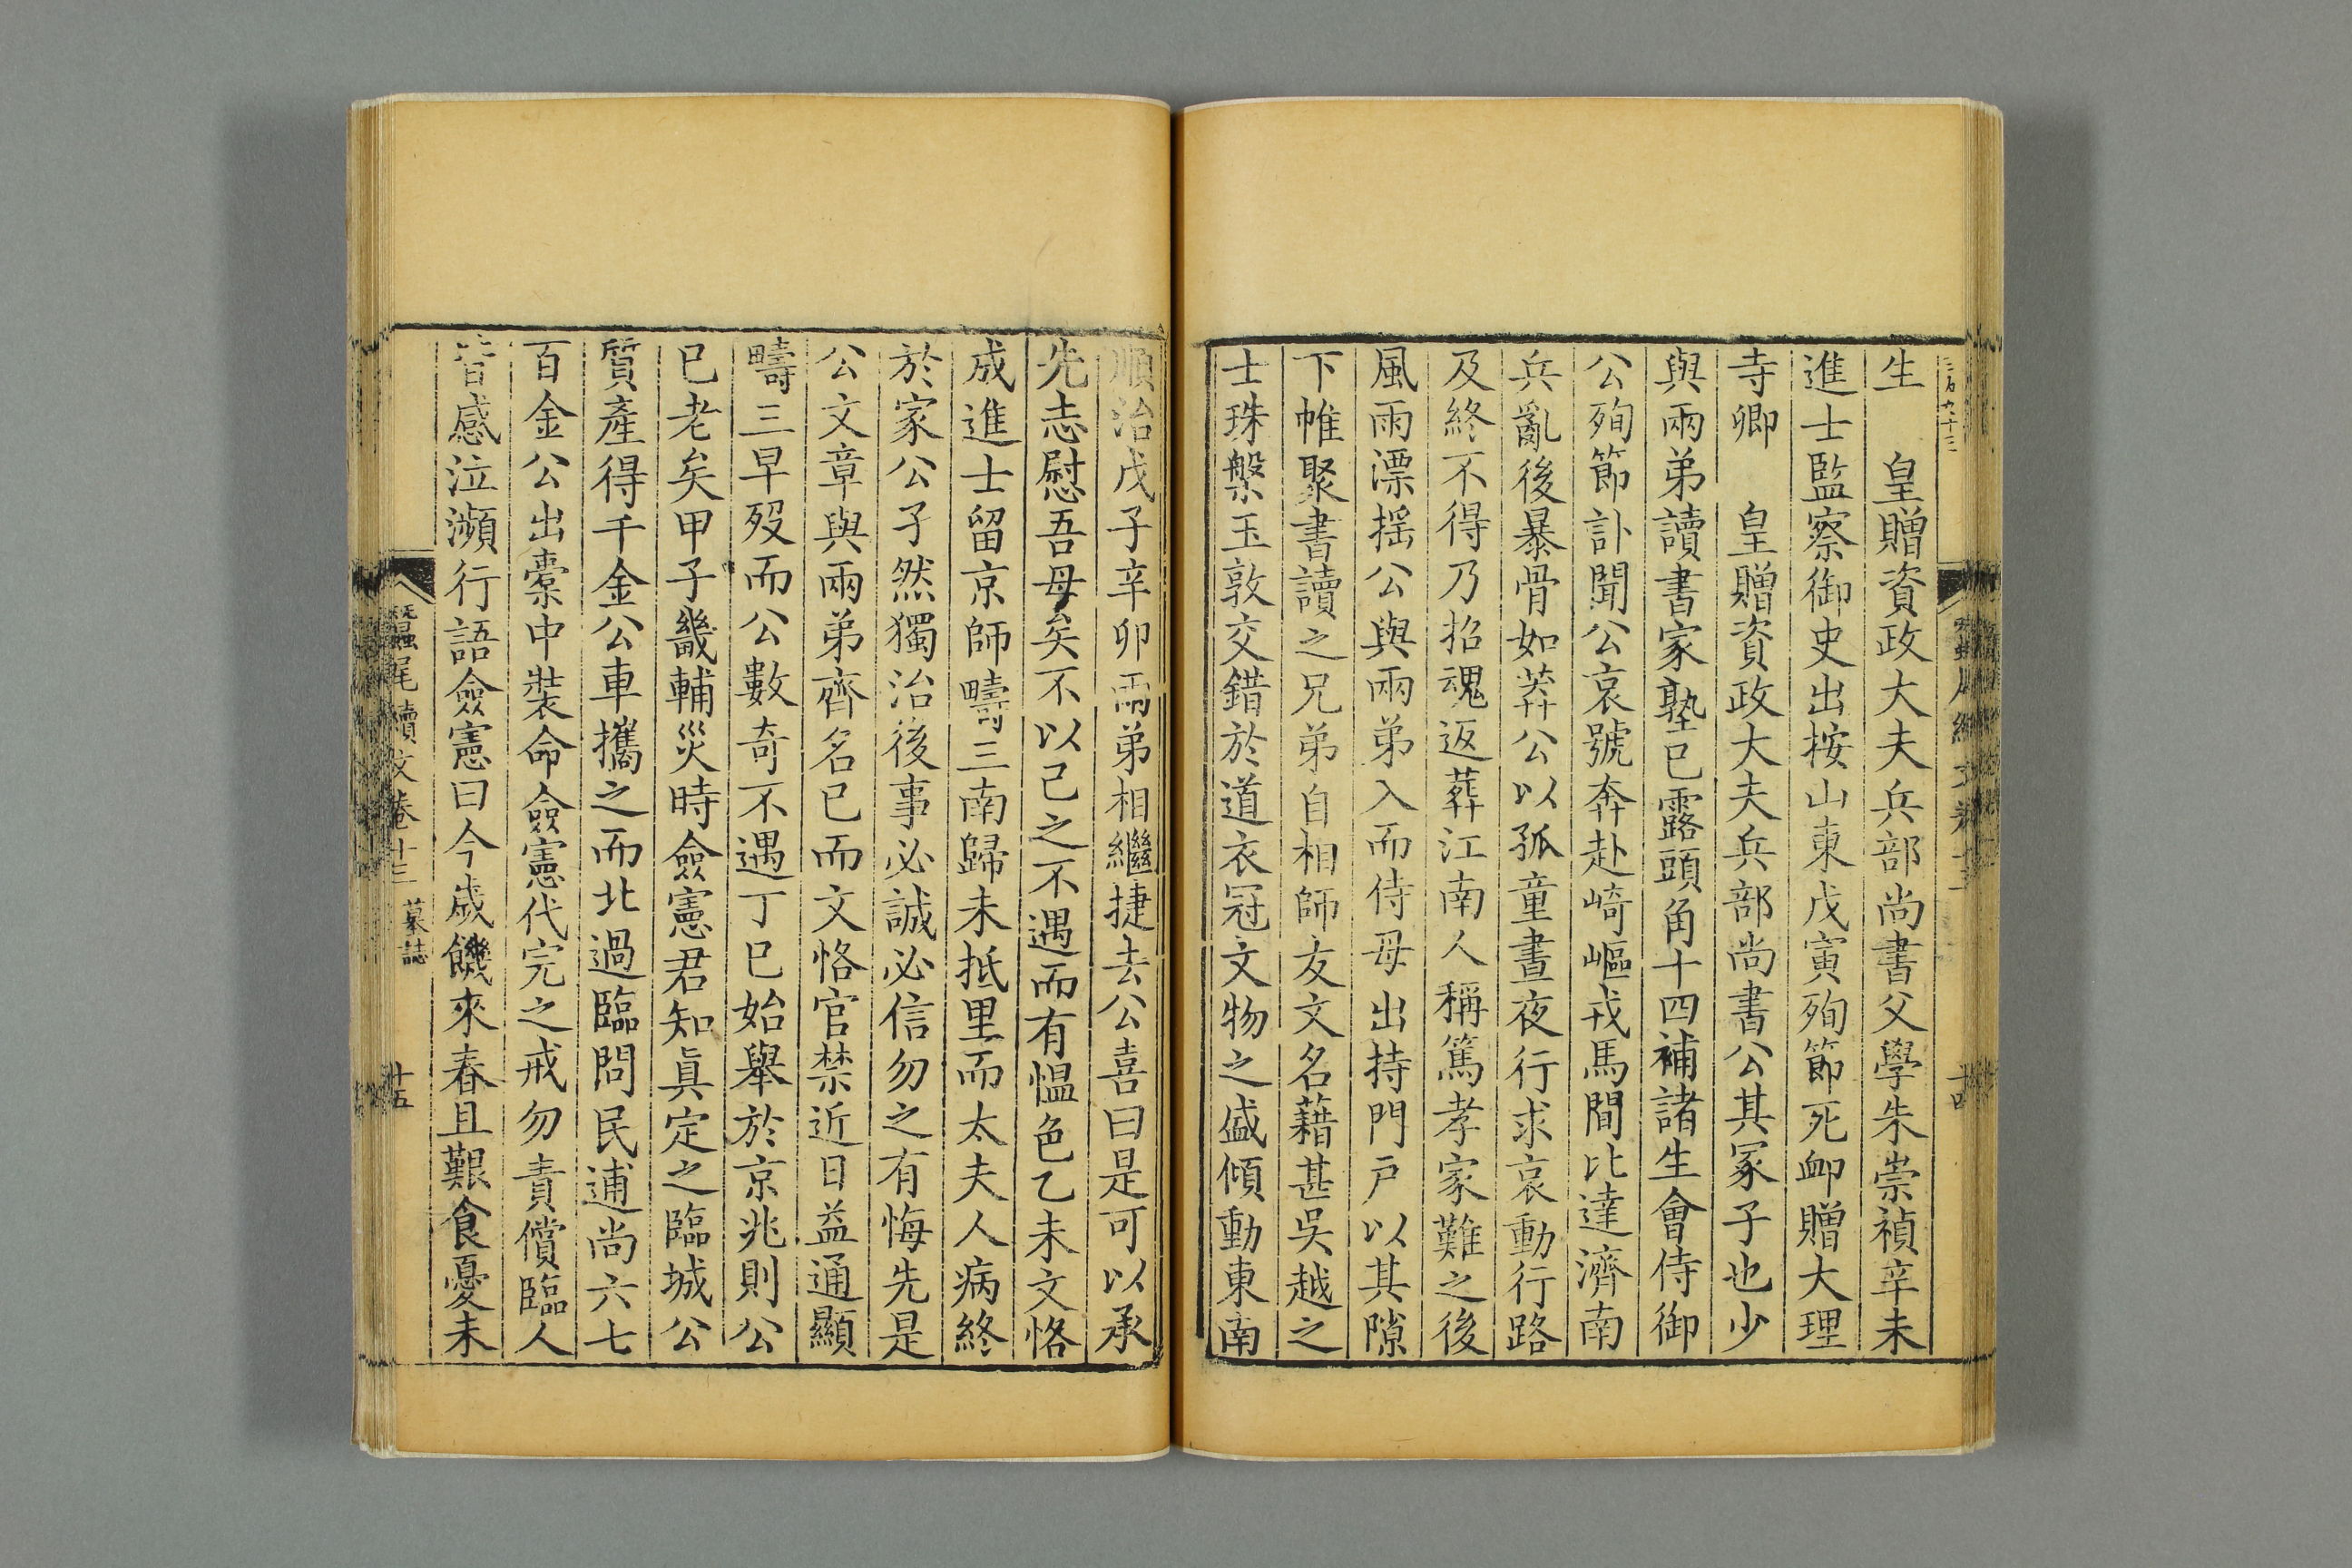 生　皇贈資政大夫兵部尚書父學朱崇禎辛未
進士監察御史出按山東戊寅殉節死卹贈大理
寺卿　皇贈資政大夫兵部尚書公其冢子也少
與兩弟讀書家塾已露頭角十四補諸生會侍御
公殉節訃聞公哀號奔赴崎嶇戎馬間比達濟南
兵亂後暴骨如莽公以孤童晝夜行求哀動行路
及終不得乃招魂返葬江南人稱篤孝家難之後
風雨漂揺公與兩弟入而侍母出持門戸以其隙
下帷聚書讀之兄弟自相師友文名藉甚吳越之
士珠槃玉敦交錯於道衣冠文物之盛傾動東南
順治戊子辛卯兩弟相繼捷去公喜曰是可以承
先志慰吾母矣不以己之不遇而有愠色乙未文恪
成進士留京師疇三南歸未抵里而太夫人病終
於家公孑然獨治後事必誠必信勿之有悔先是
公文章與兩弟齊名已而文恪官禁近日益通顯
疇三早歿而公數奇不遇丁巳始舉於京兆則公
已老矣甲子畿輔災時僉憲君知真定之臨城公
質產得千金公車攜之而北過臨問民逋尚六七
百金公出橐中裝命僉憲代完之戒勿責償臨人
皆感泣瀕行語僉憲曰今歲饑來春且艱食憂未
蠶尾續文卷十三 墓誌 十五